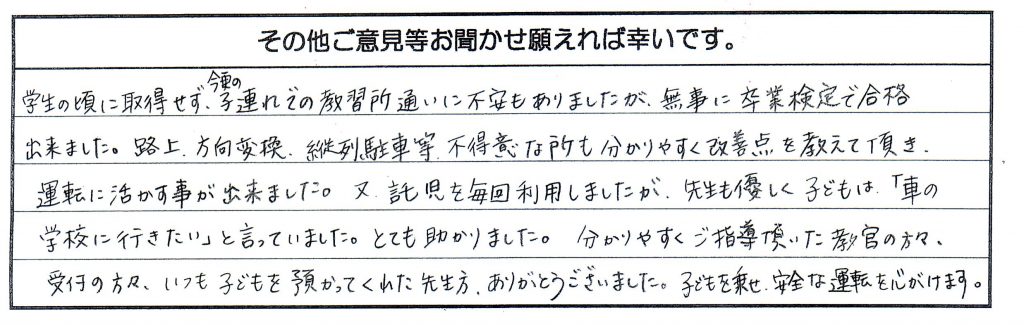 その他ご意見等お聞かせ願えれば幸いです。
学生の頃に取得せず、今更の子連れでの教習所通いに不安もありましたが、無事に卒業検定で合格
出来ました。路上、方向変換、縦列駐車等、不得意な所も分かりやすく改善点を教えて頂き、
運転に活かす事が出来ました。又、託児を毎回利用しましたが、先生も優しく子どもは、「車の
学校に行きたい」と言っていました。とても助かりました。 分かりやすくご指導頂いた教官の方々、
受付の方々、いつも子どもを預かってくれた先生方、ありがとうございました。子どもを乗せ、安全な運転を心がけます。